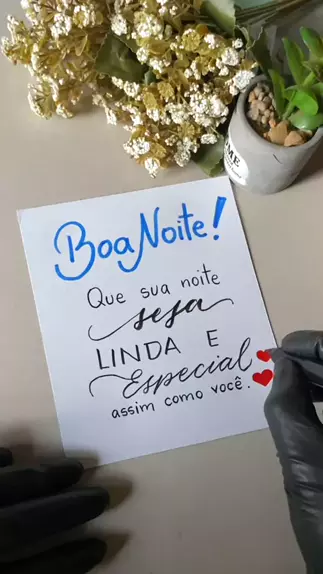 Boa Noite!
Que sua noite
seja
LINDA E
Especial
assim como você.